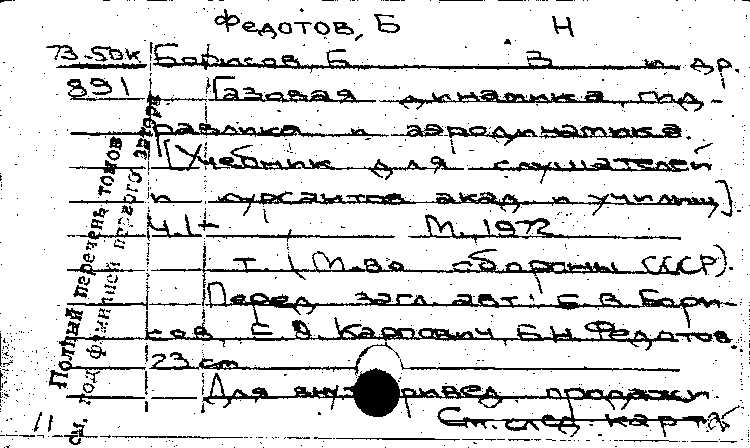 Федотов, Б Н
73-50к Борисов Б В и др.
891 Газовая динамика, гид-
равлика и аэродинамика.
[Учебник для слушателей
и курсантов акад. и училищ]
Ч.1- М., 1972
т. (М-во обороны СССР).
Перед загл. авт.: Б В Бори-
сов, Карпович, Б Н Федотов.
23 см
Для продажи
См. след. карта
11
Полный перечень томов
см. под фамилией первого автора